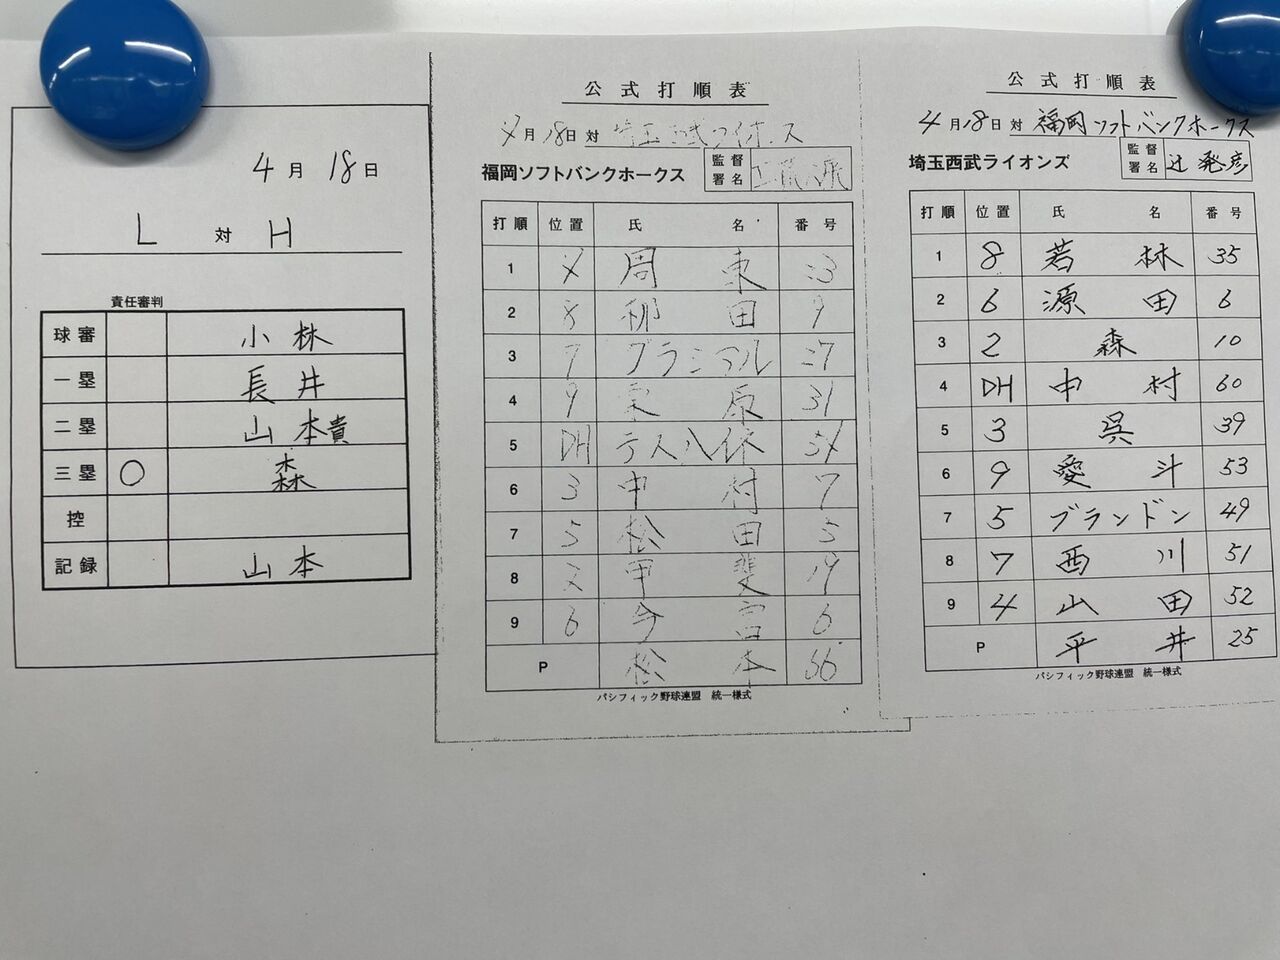 4月 18日
L 対 H
責任審判
球審 小林
一塁 長井
二塁 山本貴
三塁 ○ 森
控
記録 山本
公式打順表
4月18日 対 埼玉西武ライオンズ
福岡ソフトバンクホークス 監督署名
打順 位置 氏名 番号
1 4 周東 23
2 8 柳田 9
3 7 ブラシアル 27
4 9 栗原 31
5 DH デスパイネ 54
6 3 中村 7
7 5 松田 5
8 2 甲斐 19
9 6 今宮 6
P 松本 66
パシフィック野球連盟 統一様式
公式打順表
4月18日 対 福岡ソフトバンクホークス
埼玉西武ライオンズ 監督署名 辻発彦
打順 位置 氏名 番号
1 8 若林 35
2 6 源田 6
3 2 森 10
4 DH 中村 60
5 3 呉 39
6 9 愛斗 53
7 5 ブランドン 49
8 7 西川 51
9 4 山田 52
P 平井 25
パシフィック野球連盟 統一様式